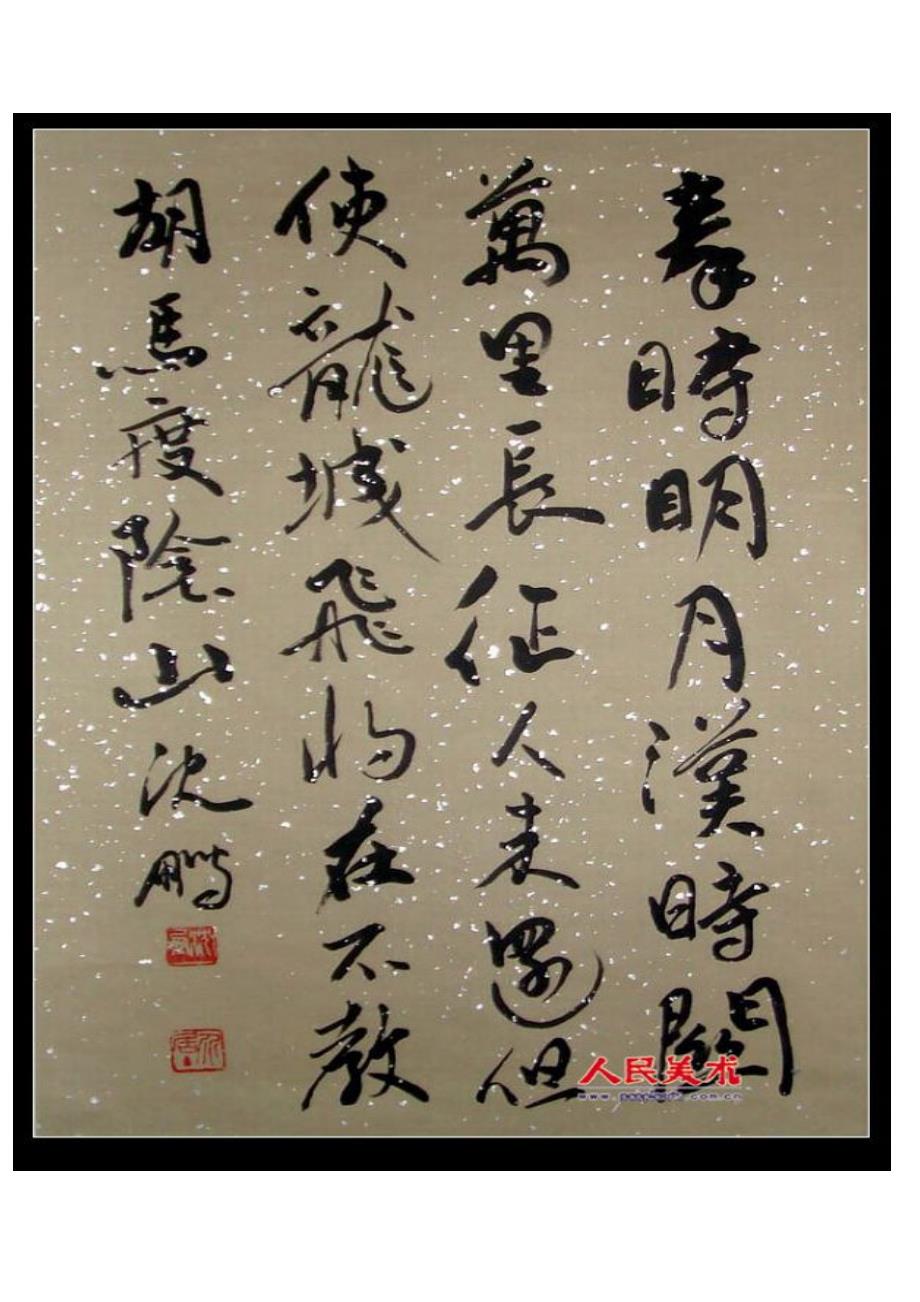 秦時明月漢時關
萬里長征人未還但
使龍城飛将在不教
胡馬度陰山沈鵬
人民美术